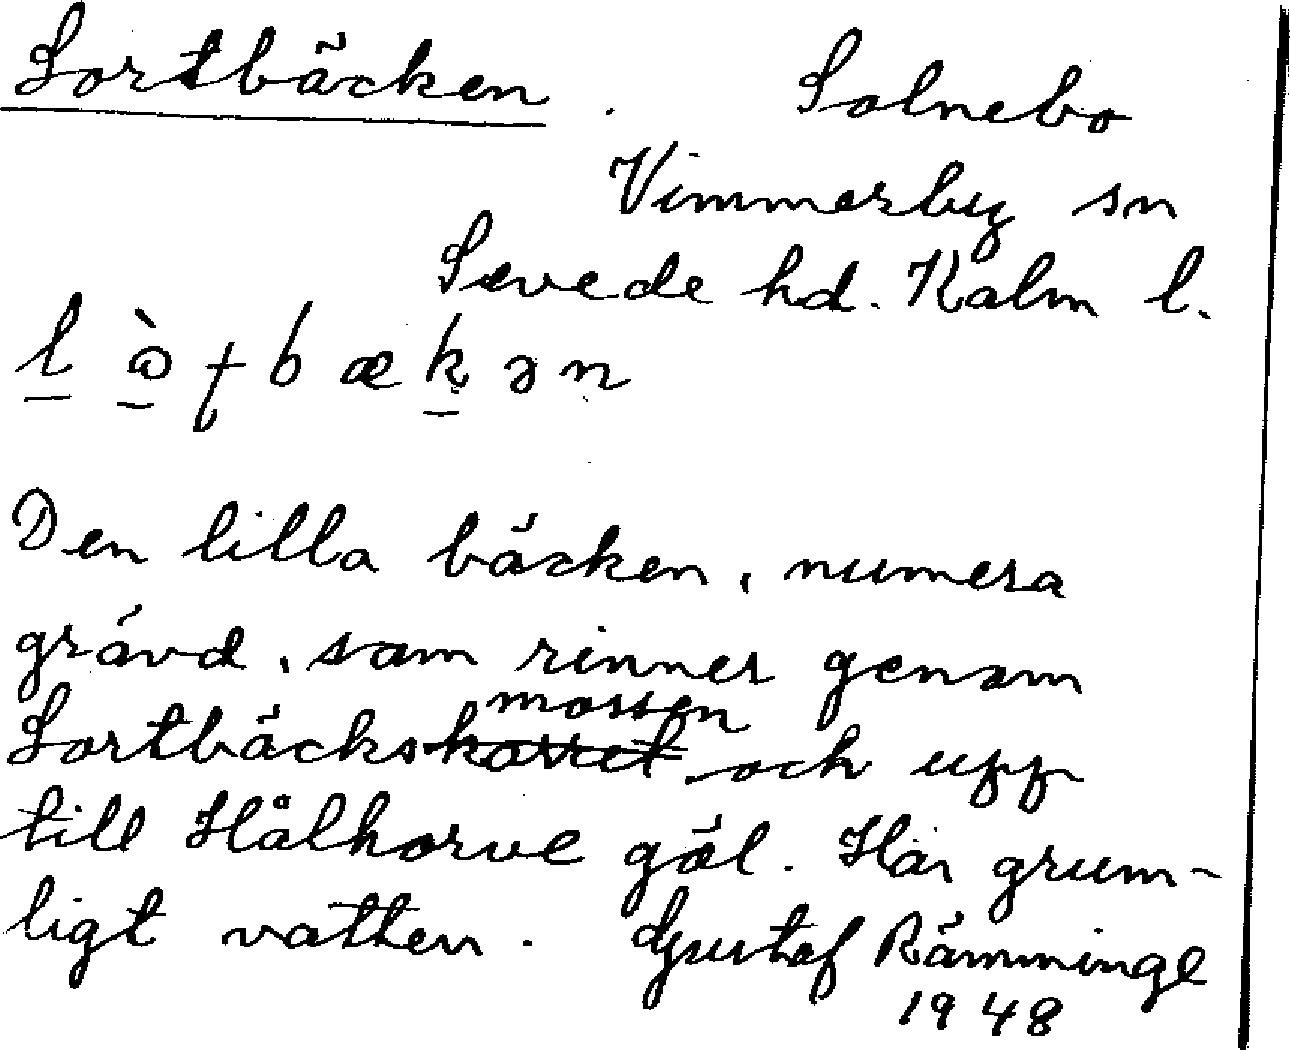 Lortbäcken. Solnebo
Vimmerby sn
Sevede hd. Kalm l.
bækən
Den lilla bäcken, numera
grävd, som rinner genom
mossen
Lortbäckskärret och upp
till Hålkorve göl. Har grum-
ligt vatten. Gustaf Rämminge
1948